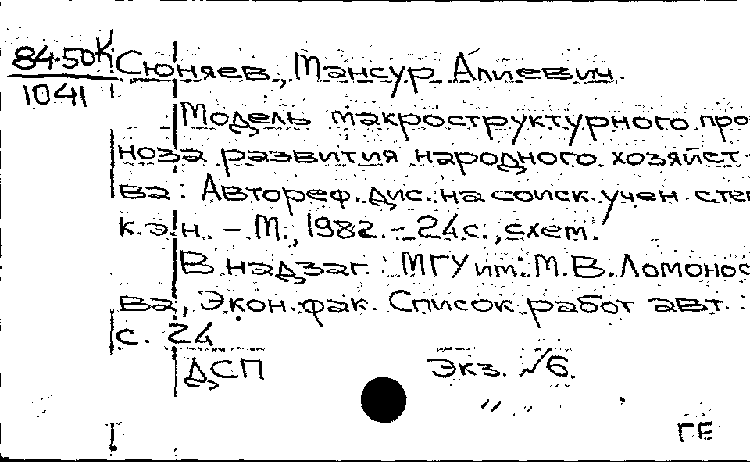 84-50К
1041
Сюняев, Мансур Алиевич.
Модель макроструктурного про
ноза развития народного хозяйст-
ва: Автореф. дис. на соиск. учен. степ
к.э.н. - М., 1982. - 24 с., схем.
В надзаг.: МГУ им. М.В. Ломоносо
ва, Экон. фак. Список работ авт.:
с. 24
ДСП Экз. №6.
ГЕ